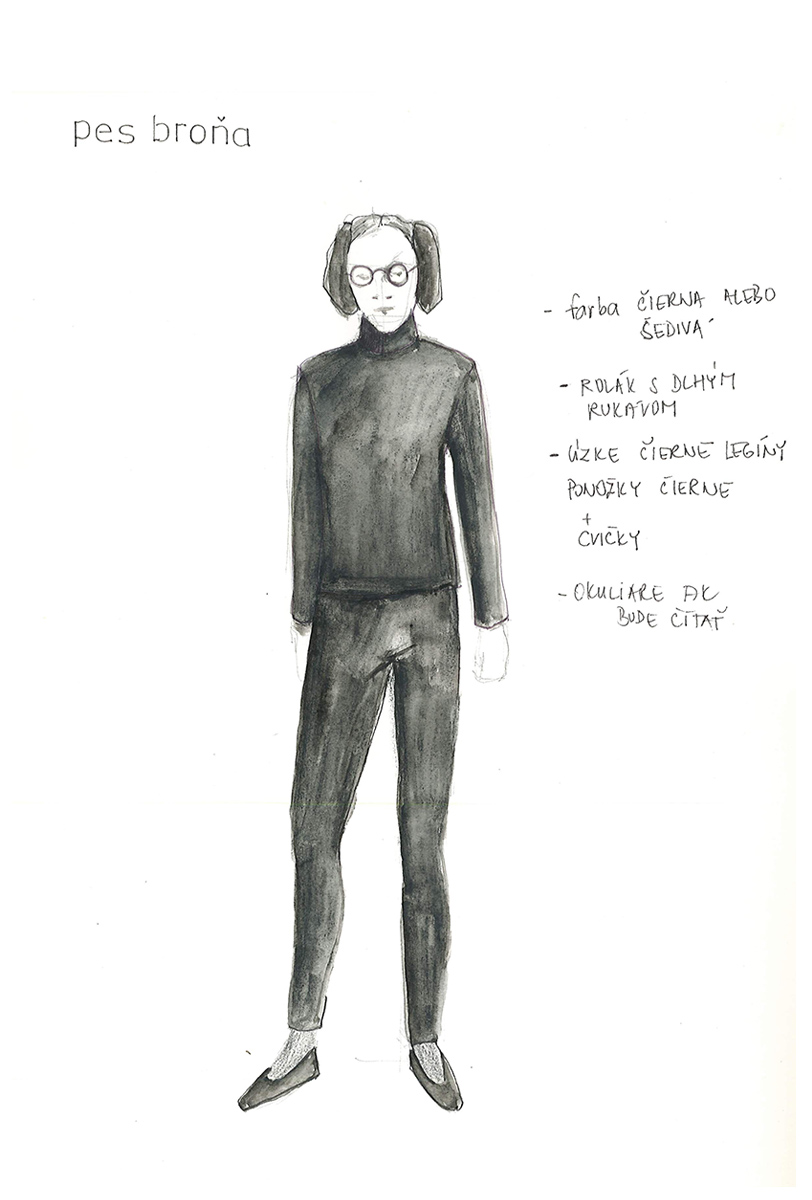 pes broňa
- farba ČIERNA ALEBO
ŠEDIVÁ
- ROLÁK S DLHÝM
RUKÁVOM
- ÚZKE ČIERNE LEGÍNY
PONOŽKY ČIERNE
+
CVIČKY
- OKULIARE AK
BUDE ČÍTAŤ